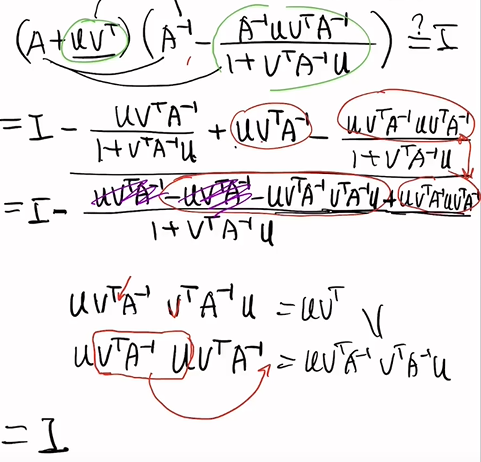 (A + uvᵀ)(A⁻¹ - A⁻¹uvᵀA⁻¹ / 1 + vᵀA⁻¹u) ?= I
= I - uvᵀA⁻¹ / 1 + vᵀA⁻¹u + uvᵀA⁻¹ - uvᵀA⁻¹uvᵀA⁻¹ / 1 + vᵀA⁻¹u
= I - uvᵀA⁻¹ - uvᵀA⁻¹ - uvᵀA⁻¹vᵀA⁻¹u + uvᵀA⁻¹uvᵀA⁻¹ / 1 + vᵀA⁻¹u
uvᵀA⁻¹ vᵀA⁻¹u = uvᵀ
uvᵀA⁻¹ uvᵀA⁻¹ = uvᵀA⁻¹ vᵀA⁻¹u
= I